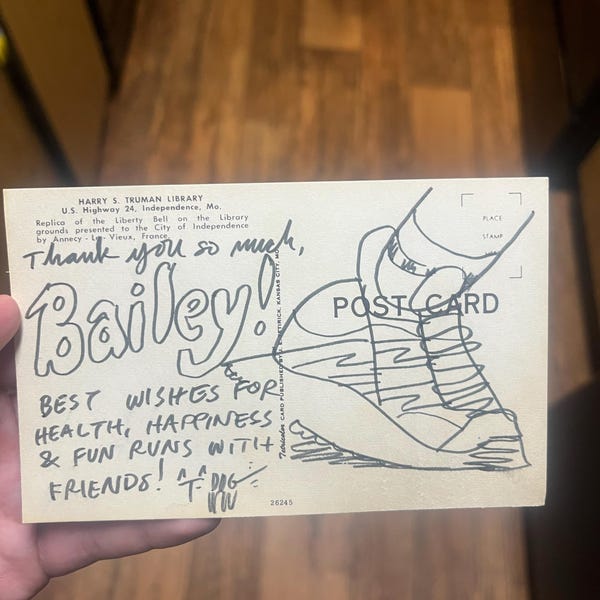 HARRY S. TRUMAN LIBRARY
U.S. Highway 24, Independence, Mo.
Replica of the Liberty Bell on the Library
grounds presented to the City of Independence
by Annecy - Le Vieux, France.
Thank you so much,
Bailey!
BEST WISHES FOR
HEALTH, HAPPINESS
& FUN RUNS WITH
FRIENDS! T-DOG
CARD PUBLISHED BY KANSAS CITY, MO.
POST CARD
PLACE
STAMP
26245